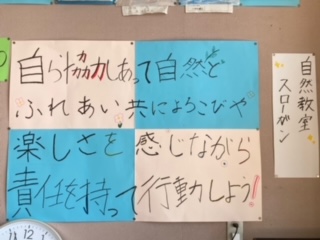 自ら協力しあって自然と
ふれあい共によろこびや
楽しさを感じながら
責任を持って行動しよう!
自然教室
スローガン
12